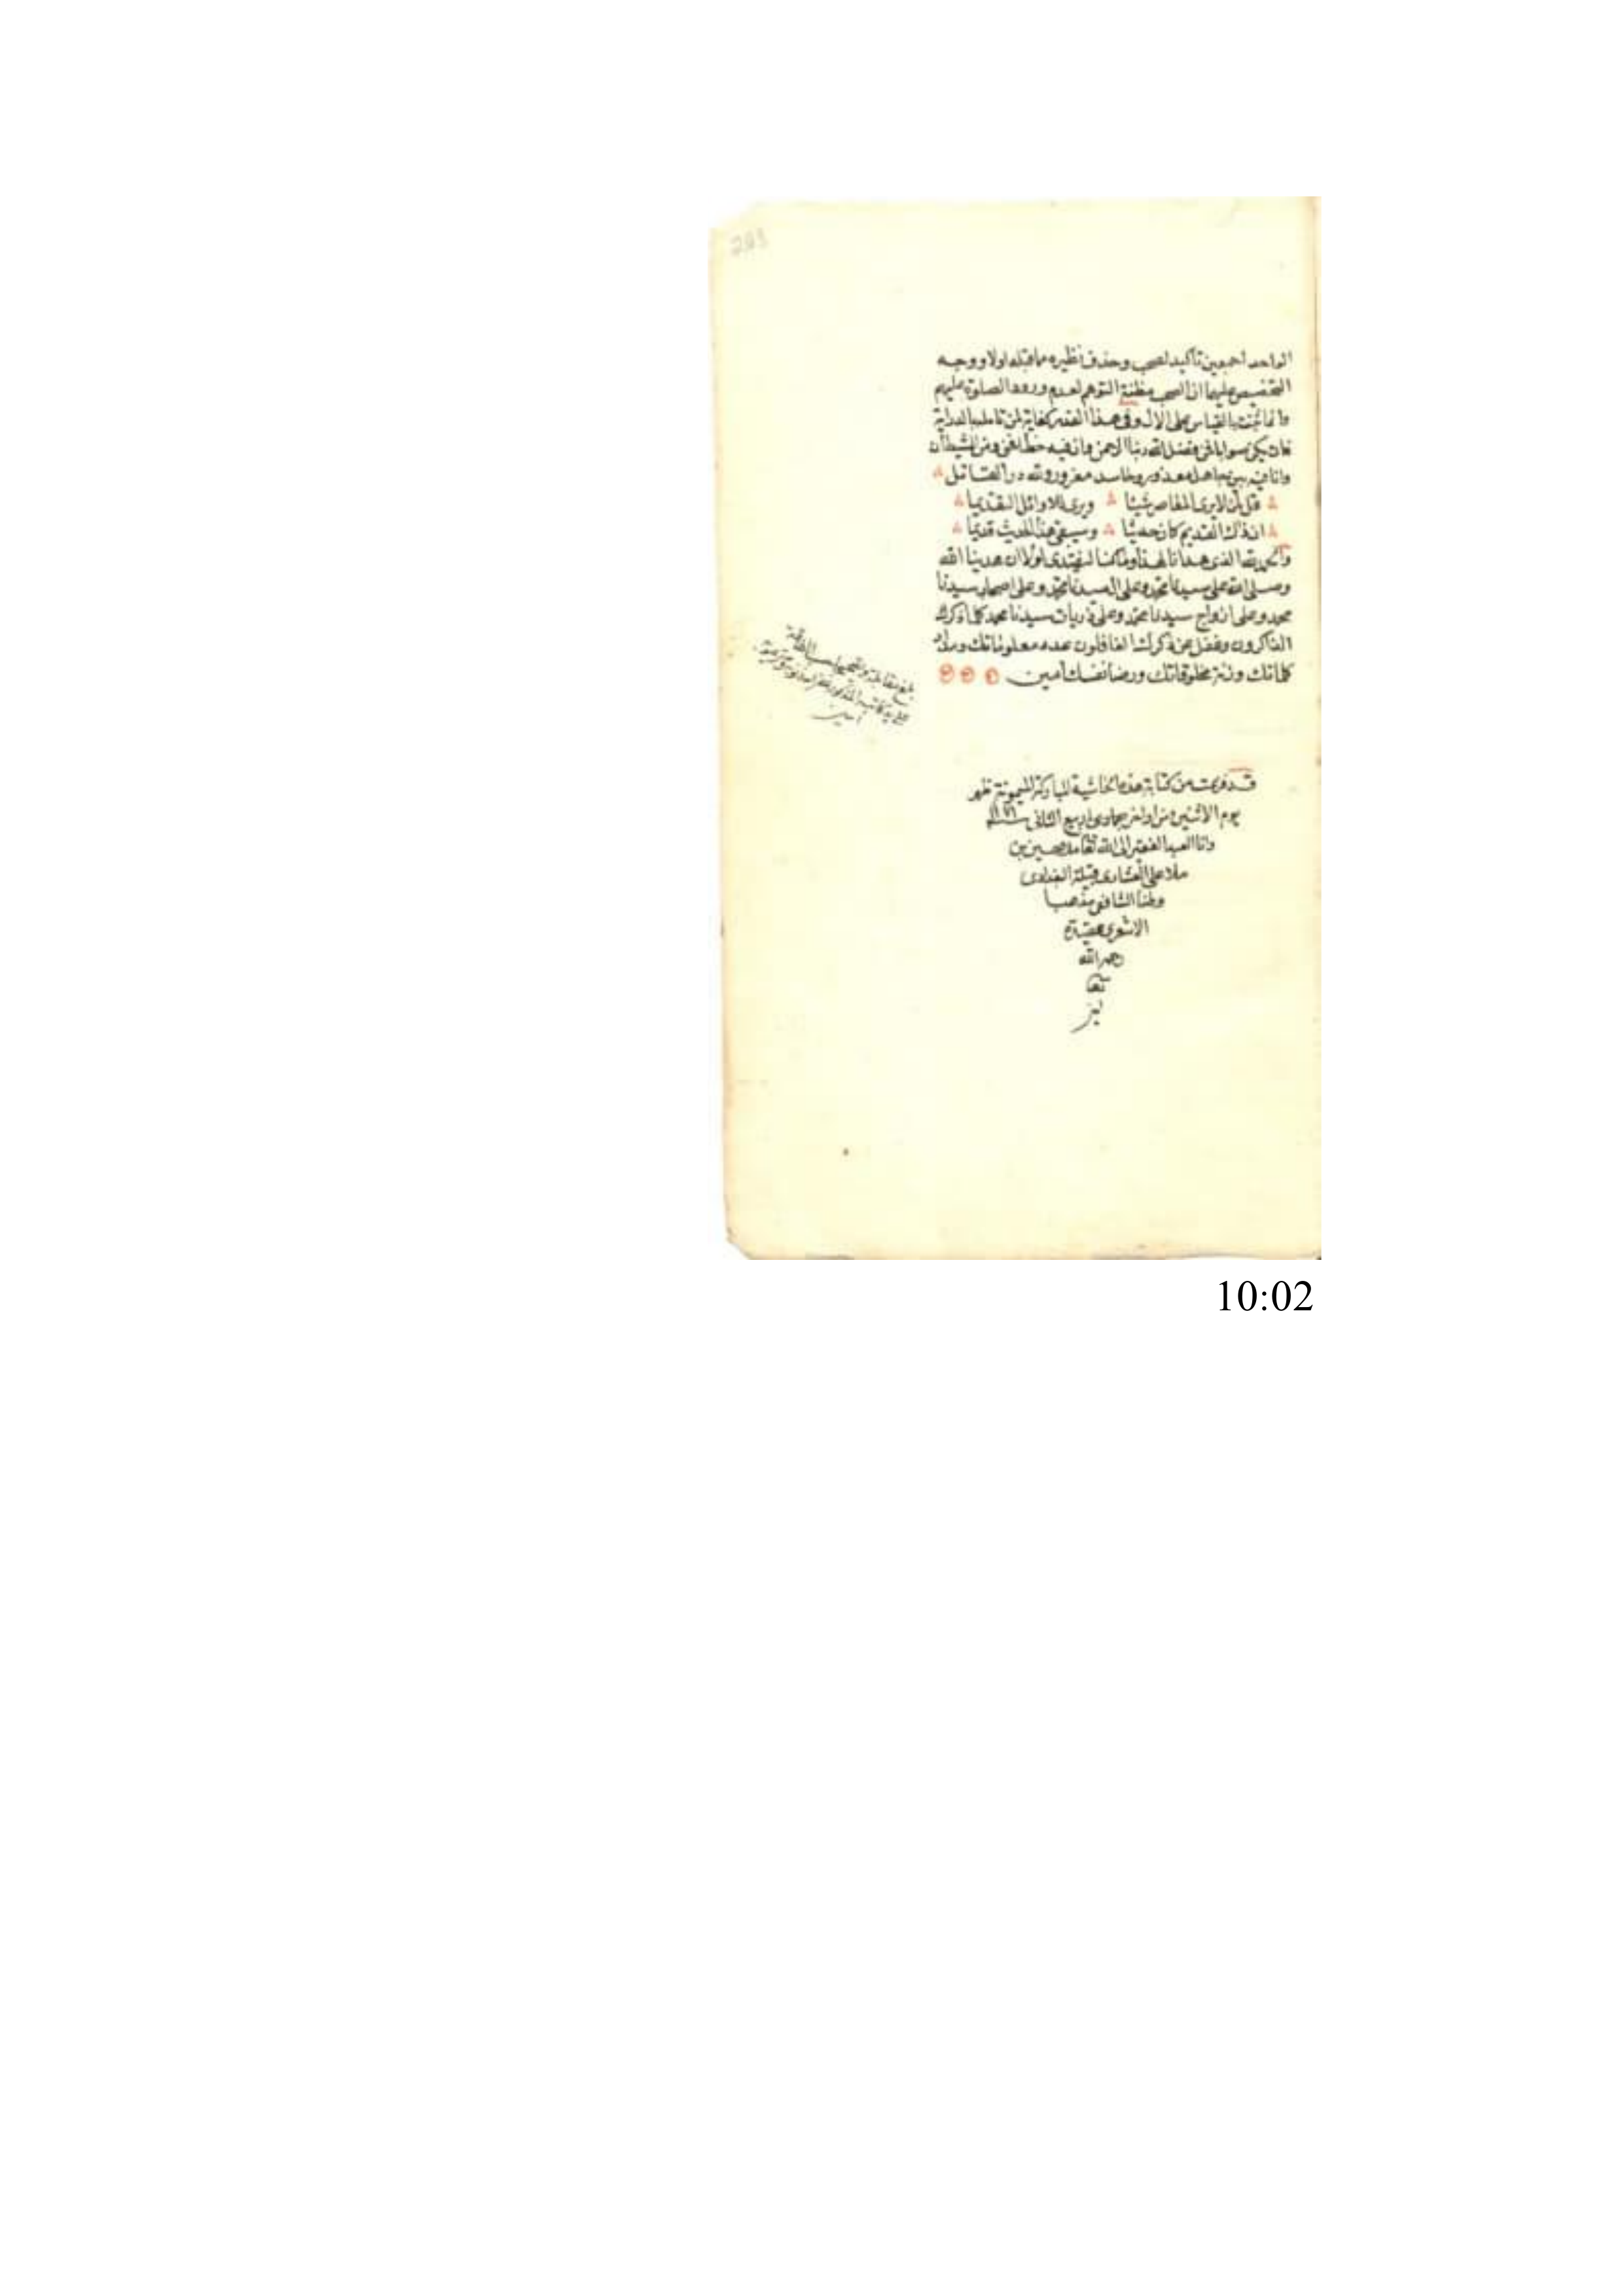 203
الواحد اجمعين تأكيد لصحب وحذف نظيره مما قبله اولا ووجه
التخصيص عليهما ان الصحب مظنة التوهم لعدم ورود الصلوة عليهم
وانما ثبتت بالقياس على الال وفي هذا القدر كفاية لمن تأمله بالدراية
فان يكن صوابا فمن فضل الله ربنا الرحمن وان فيه خطا فمني ومن الشيطان
وانا فيه بين جاهل معذور وحاسد مغرور ولله در القائل
قل لمن لا يرى المعاصر شيئا ويرى للاوائل التقديما
ان ذاك القديم كان حديثا وسيبقى هذا الحديث قديما
والحمد لله الذي هدانا لهذا وما كنا لنهتدي لولا ان هدينا الله
وصلى الله على سيدنا محمد وعلى ال سيدنا محمد وعلى اصحاب سيدنا
محمد وعلى ازواج سيدنا محمد وعلى ذريات سيدنا محمد كلما ذكرك
الذاكرون وغفل عن ذكرك الغافلون عدد معلوماتك ومداد
كلماتك وزنة مخلوقاتك ورضا نفسك امين
بلغ مقابلة وتصحيحا حسب الطاقة
على يد كاتبه المذكور غفر له
امين
قد فرغت من كتابة هذه الحاشية المباركة الميمونة ظهر
يوم الاثنين من اواخر ربيع الثاني سنة ١١٧١
وانا العبد الفقير الى الله تعالى حسين بن
ملا علي العشاري قبيلة البغدادي
وطنا الشافعي مذهبا
الاشعري عقيدة
رحمه الله
تعا